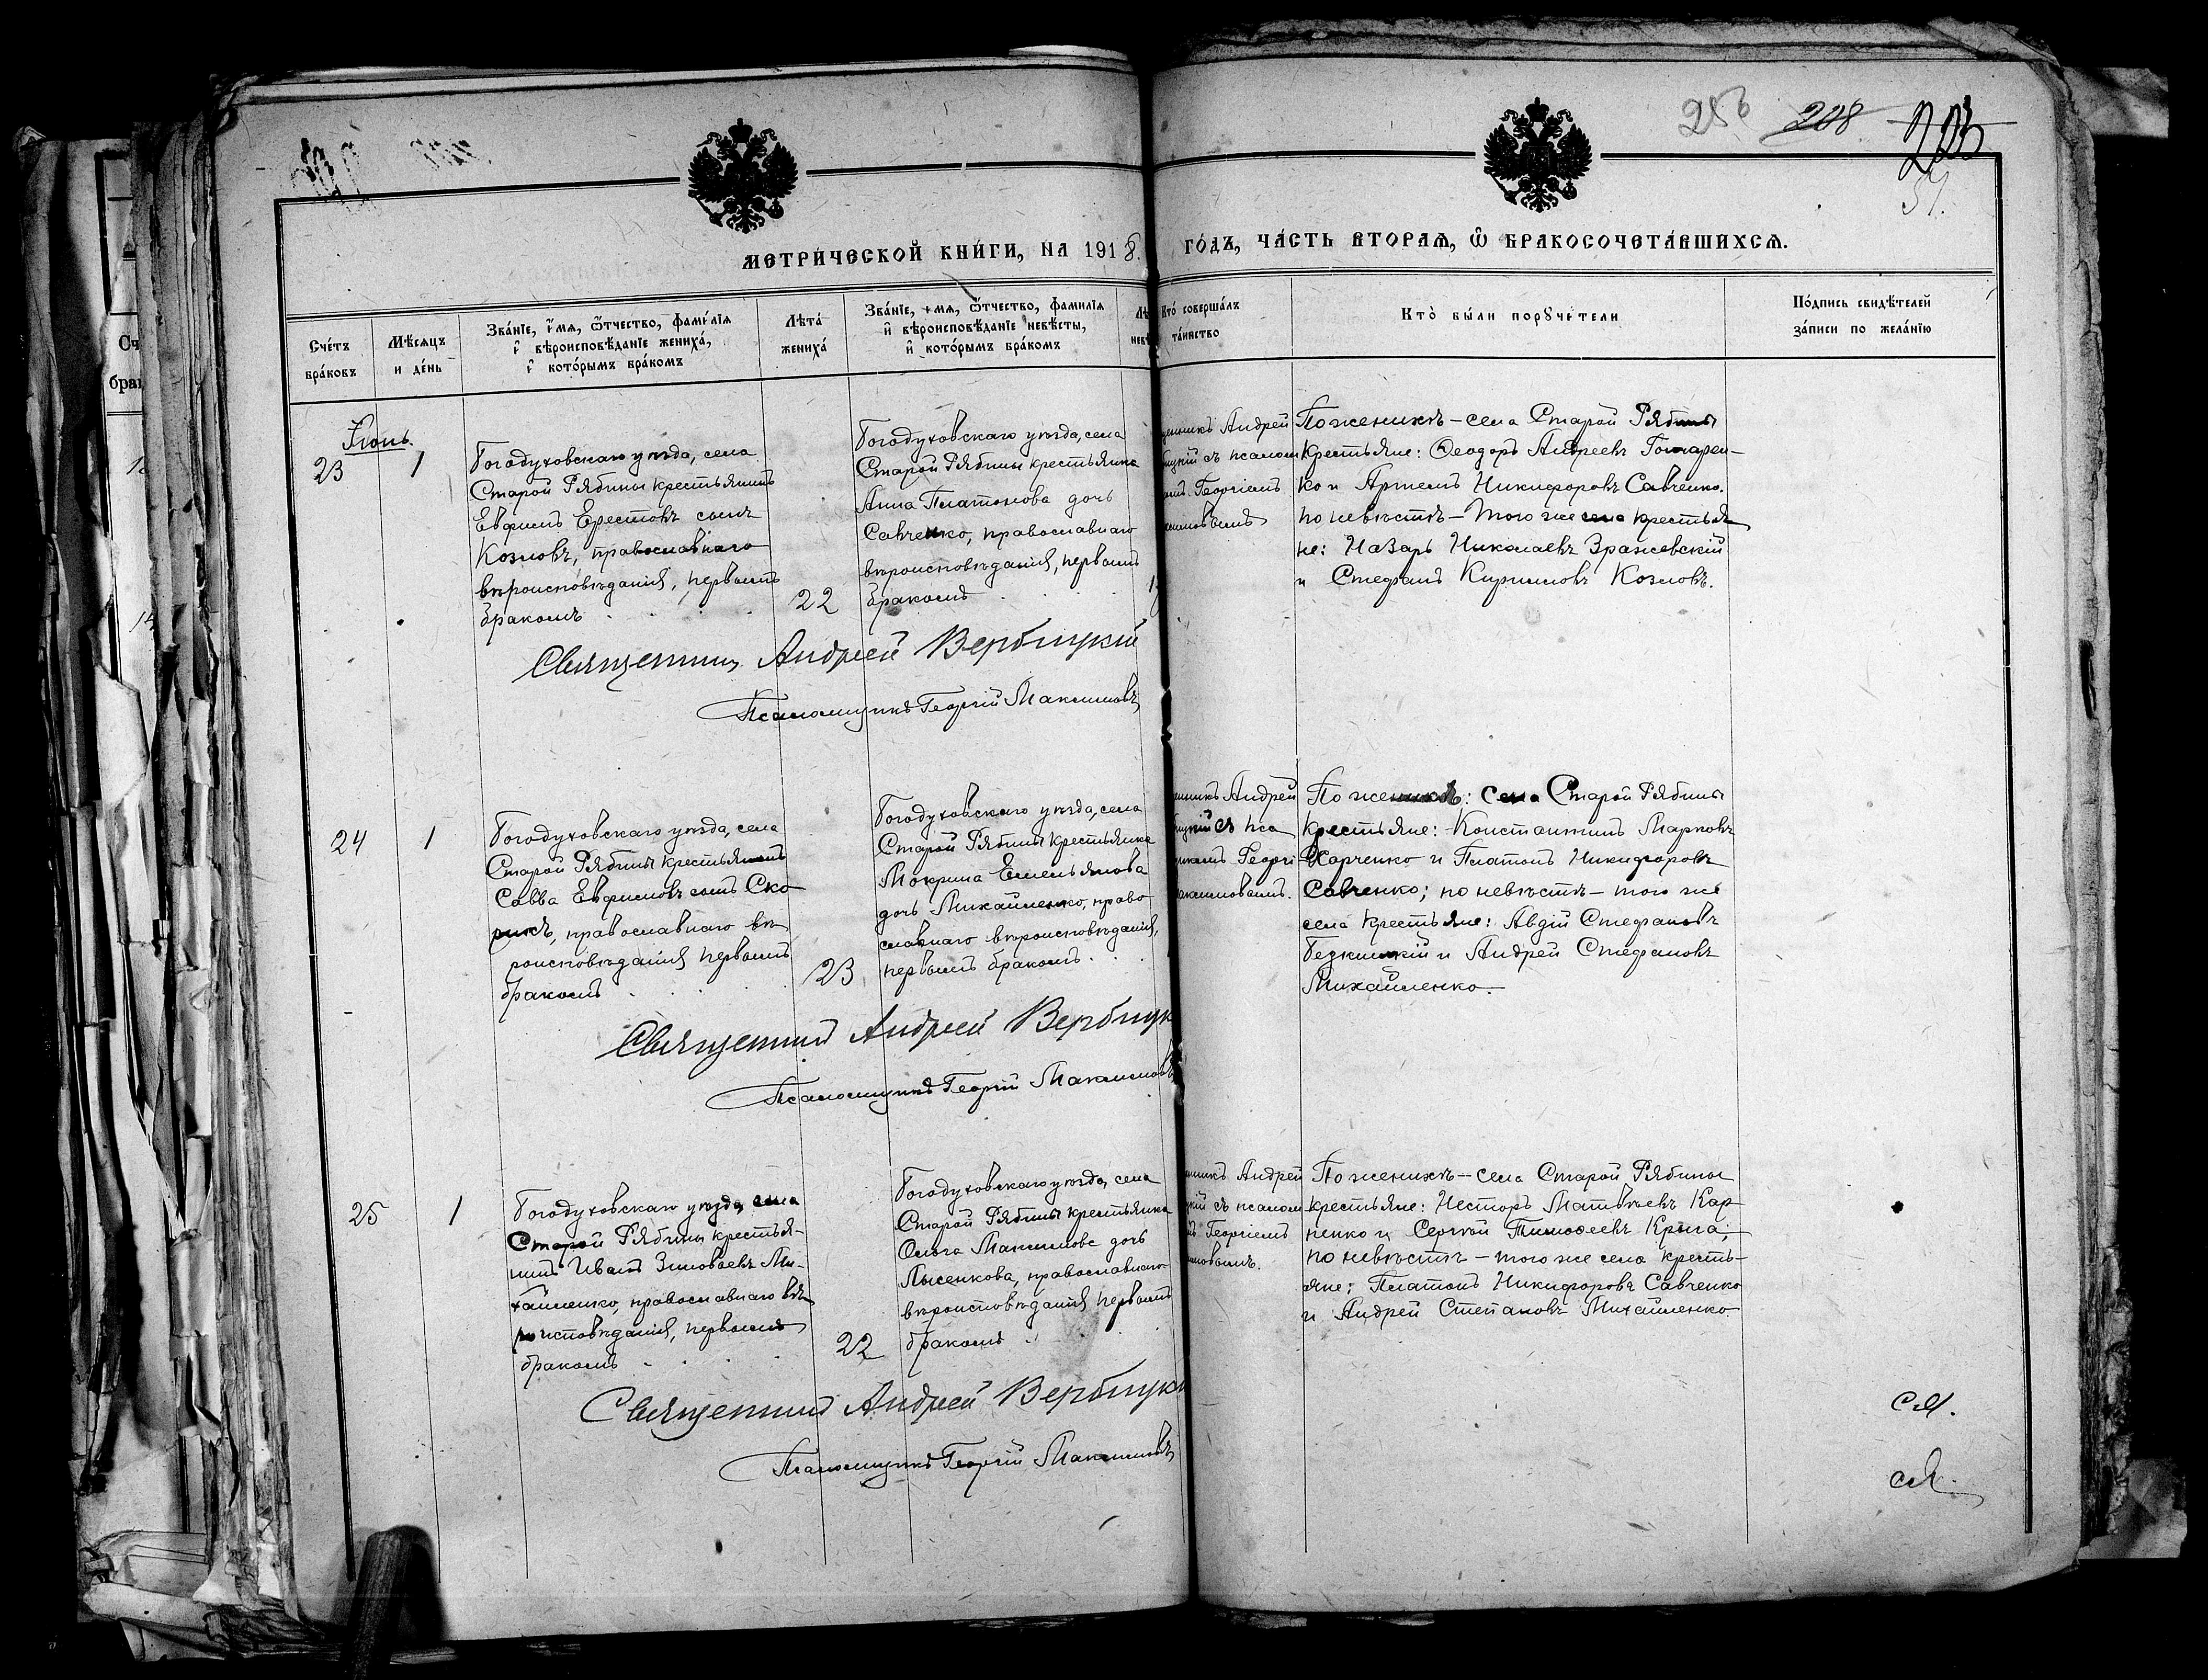 256 208 203
51.
МЕТРИ́ЧЕСКОЙ КНИ́ГИ, НА 1918. ГО́ДЪ, ЧА́СТЬ ВТОРАѦ, Ѡ БРАКОСОЧЕТА́ВШИХСѦ.
Сче́тъ бра́ковъ
Мѣ́сяцъ и де́нь
Зва́нїе, и́мя, ѻ́тчество, фами́лїя
и҆ вѣроисповѣ́данїе жениха́,
и҆ кото́рымъ бра́комъ
Лѣта́ жениха́
Зва́нїе, имя, ѻ́тчество, фами́лїя
и҆ вѣроисповѣ́данїе невѣ́сты,
и҆ кото́рымъ бра́комъ
Кто́ соверша́лъ
та́инство
Кто̀ бы́ли пору́чи́тели
По́дпись свидѣ́телей
за́писи по жела́нїю
Іюнь.
23 1
Богодуховскаго уѣзда, села
Старой Рябины крестьянинъ
Евфимъ Ерестовъ сынъ
Козловъ, православнаго
вѣроисповѣданія, первымъ
бракомъ
22
Богодуховскаго уѣзда, села
Старой Рябины крестьянка
Анна Платонова дочь
Савченко, православнаго
вѣроисповѣданія, первымъ
бракомъ
Андрей
съ псалом
Георгіемъ
По женихѣ – села Старой Рябины
крестьяне: Ѳеодоръ Андреевъ Гончарен-
ко и Артемъ Никифоровъ Савченко.
по невѣстѣ – того же села крестья
не: Назарь Николаевъ Зражевскій
и Стефанъ Кирилловъ Козловъ.
Священникъ Андрей Вербицкій
Псаломщикъ Георгій Максимовъ
24 1
Богодуховскаго уѣзда, села
Старой Рябины крестьянинъ
Савва Евфимовъ сынъ Ско
рикъ, православнаго вѣ
роисповѣданія первымъ
бракомъ
23
Богодуховскаго уѣзда, села
Старой Рябины крестьянка
Мокрина Емельянова
дочь Михайленко, право
славнаго вѣроисповѣданія,
первымъ бракомъ
Андрей
съ пса
Георгі
По женихѣ: села Старой Рябины
крестьяне: Константинъ Марковъ
Харченко и Платонъ Никифоровъ
Савченко; по невѣстѣ – того же
села крестьяне: Авдій Стефановъ
и Андрей Стефановъ
Михайленко.
Священникъ Андрей Вербицк
Псаломщикъ Георгій Максимовъ
25 1
Богодуховскаго уѣзда, села
Старой Рябины крестья-
нинъ Иванъ Зиновьевъ Ми-
хайленко, православнаго вѣ
роисповѣданія, первымъ
бракомъ
22
Богодуховскаго уѣзда, села
Старой Рябины крестьянка
Ольга Максимова дочь
Лысенкова, православнаго
вѣроисповѣданія первымъ
бракомъ
Андрей
съ псалом
Георгіемъ
По женихѣ – села Старой Рябины
крестьяне: Несторъ Матвѣевъ Кар
пенко и Сергѣй Тимоѳеевъ Крыга;
по невѣстѣ – того же села кресть-
яне: Платонъ Никифоровъ Савченко
и Андрей Степановъ Михайленко.
Священникъ Андрей Вербицк
Псаломщикъ Георгій Максимовъ